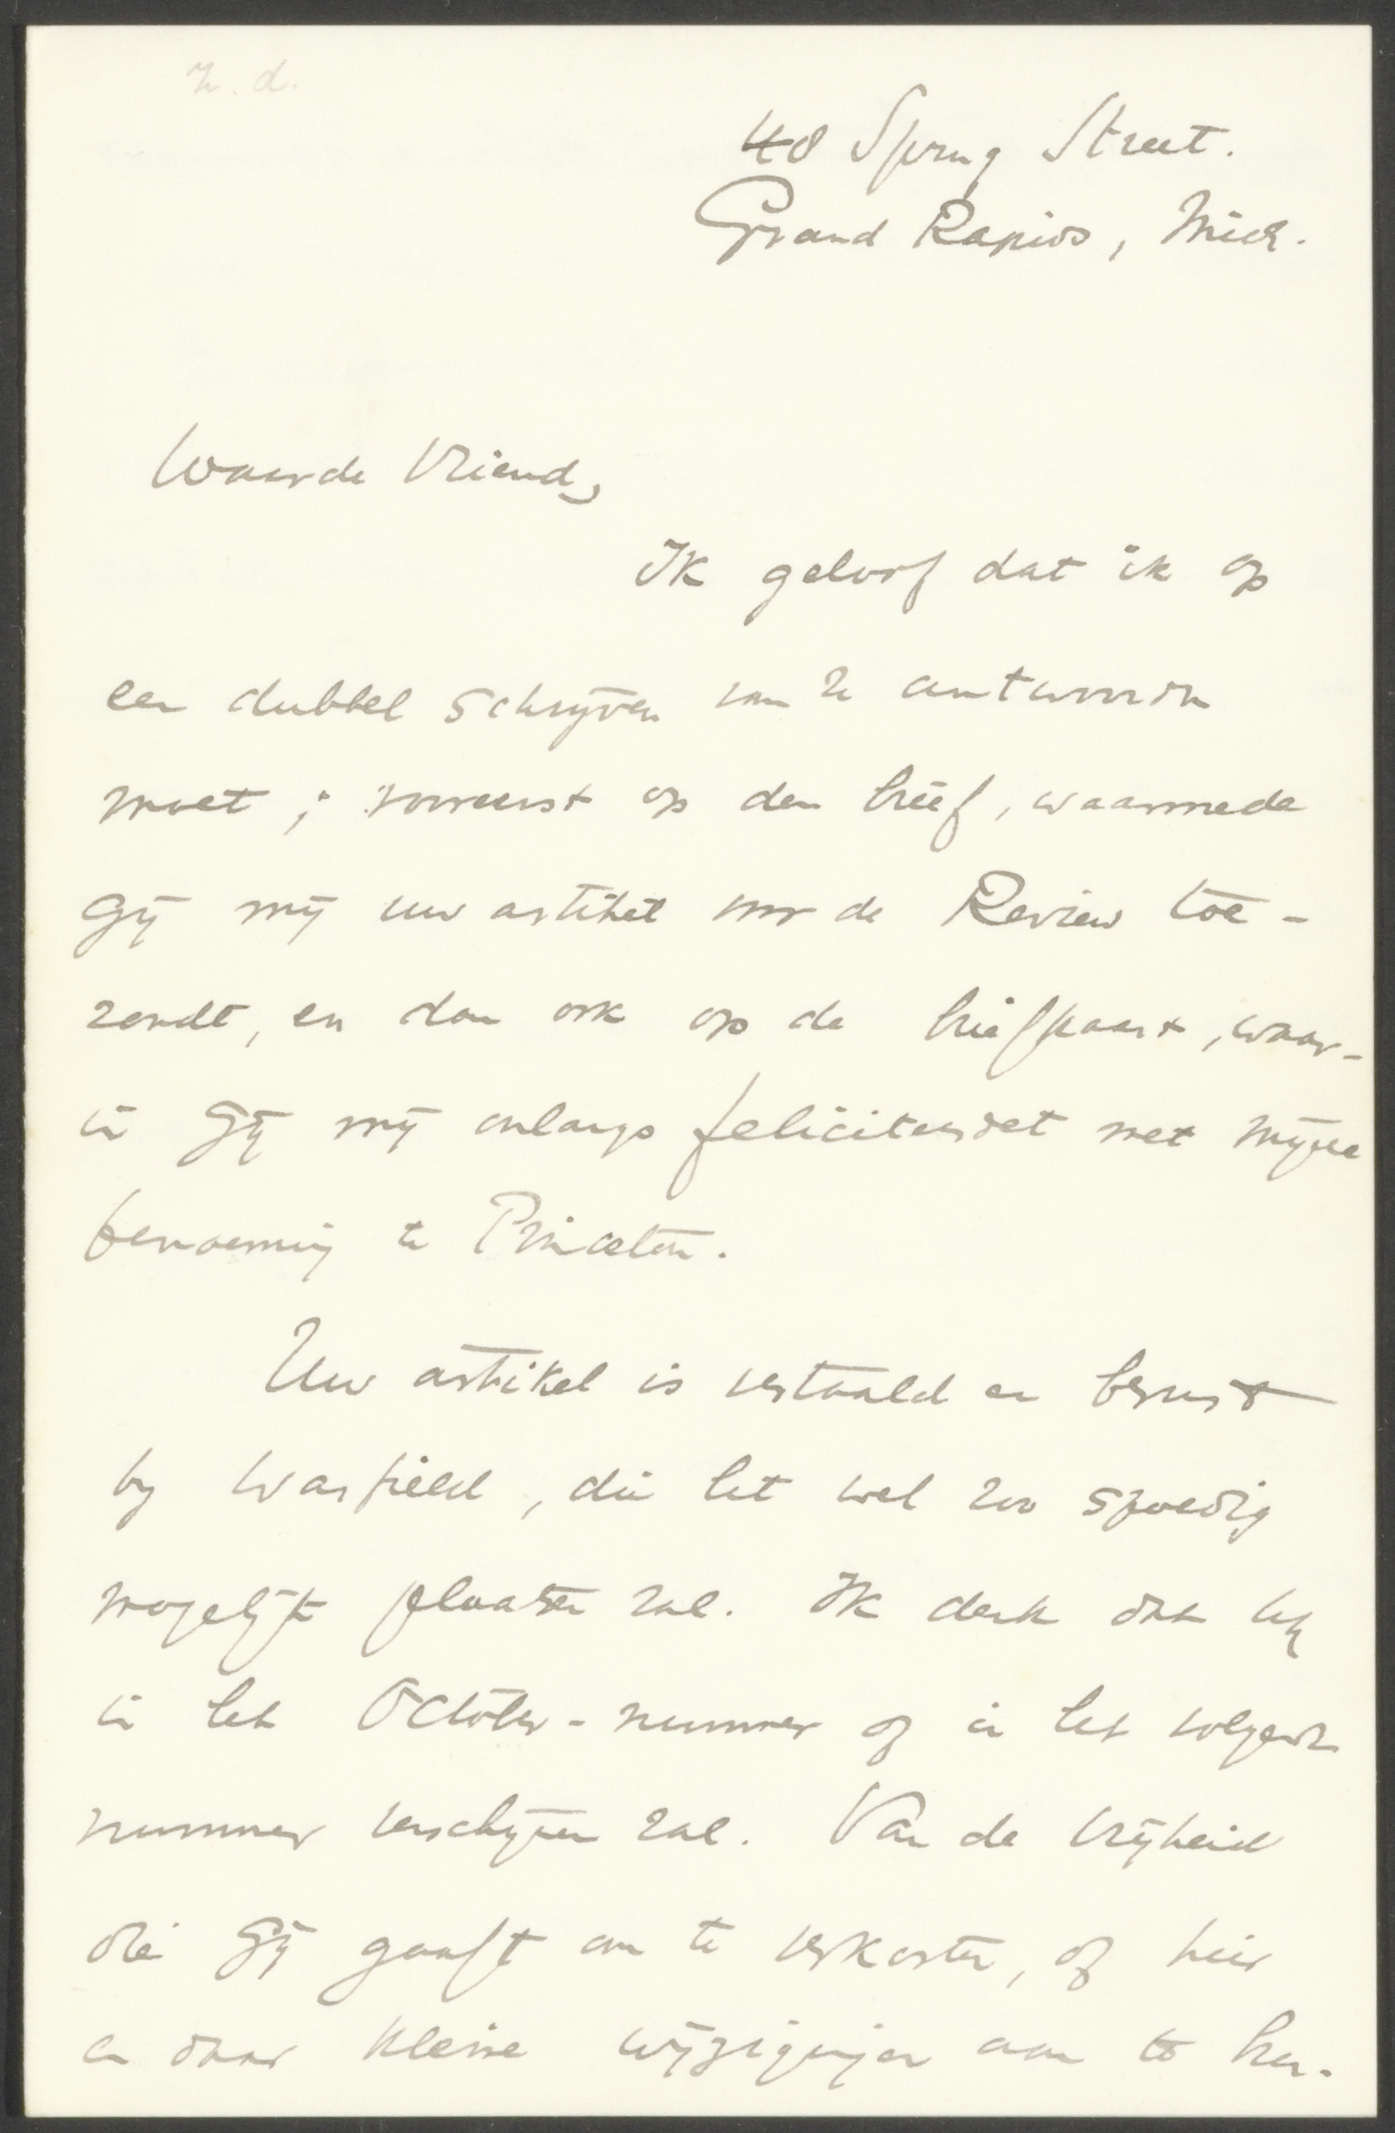 z. d.
48 Spring Street.
Grand Rapids, Mich.
Waarde Vriend,
Ik geloof dat ik op
een dubbel schrijven van U antwoorden
moet; vooreerst op den brief, waarmede
Gij mij uw artikel voor de Review toe-
zondt, en dan ook op de briefkaart, waar-
in Gij mij onlangs feliciteerdet met mijne
benoeming te Princeton.
Uw artikel is vertaald en berust
by Warfield, die het wel zoo spoedig
mogelijk plaatsen zal. Ik denk dat hij
in het October-nummer of in het volgende
nummer verschijnen zal. Van de vrijheid
die Gij gaaft om te verkorten, of hier
en daar kleine wijzigingen aan te bren-